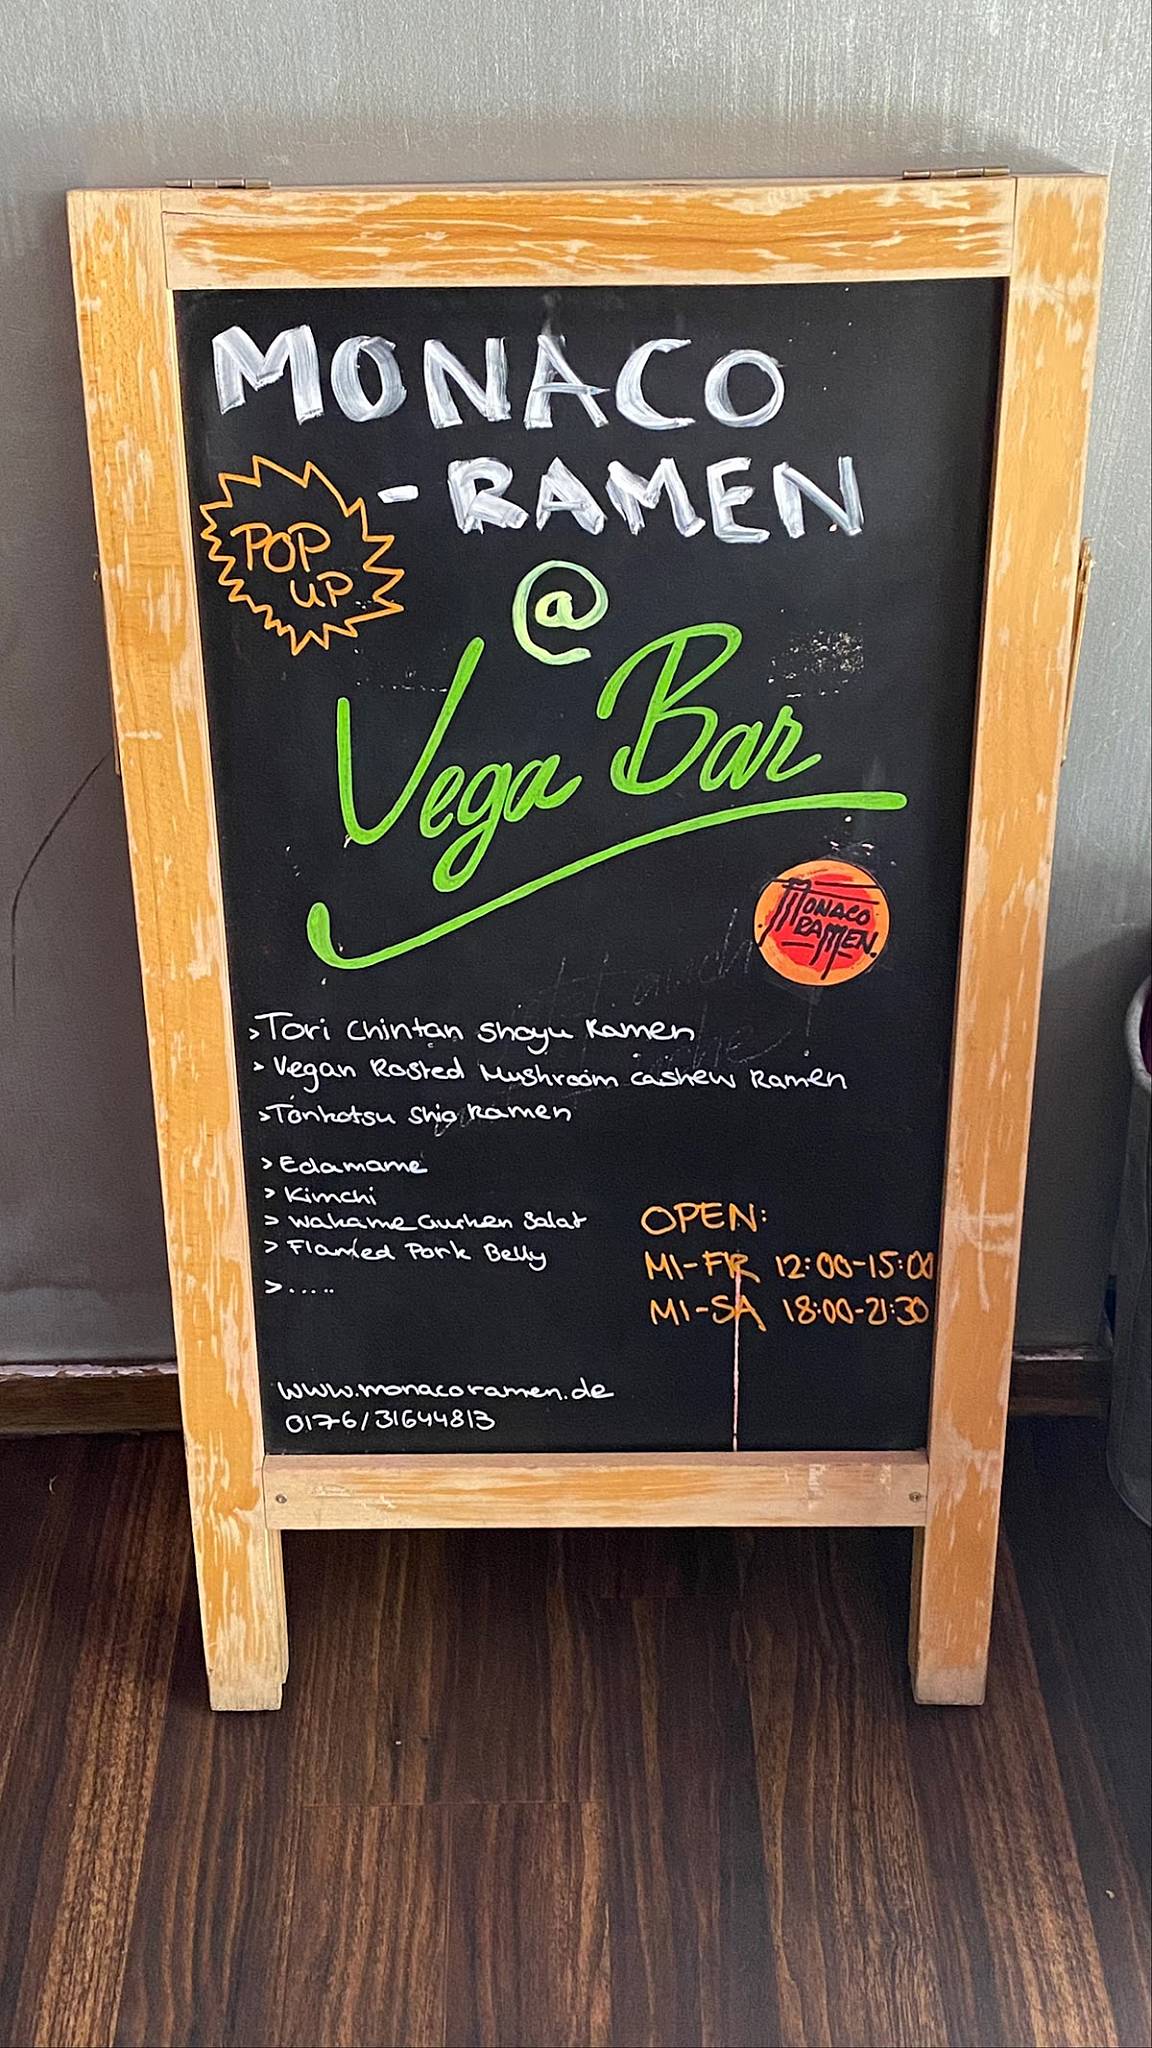 MONACO
-RAMEN
POP
UP
@
Vega Bar
MONACO
RAMEN.
>Tori Chintan Shoyu Ramen
> Vegan Rosted Mushroom Cashew Ramen
>Tonkotsu Shio Ramen
> Edamame
> Kimchi
> Wakame Gurken Salat
> Flamed Pork Belly
>.....
OPEN:
MI-FR 12:00-15:00
MI-SA 18:00-21:30
www.monacoramen.de
0176/31644813